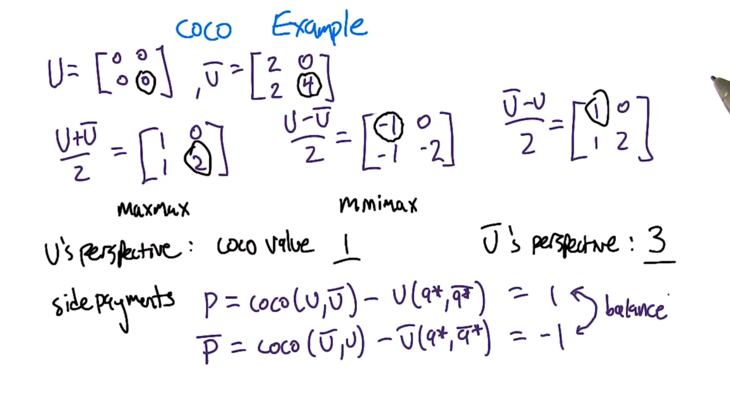 COCO Example
U = [0 0 0 0], Ū = [2 0 2 4]
U+Ū/2 = [1 0 1 2] U-Ū/2 = [-1 0 -1 -2] Ū-U/2 = [1 0 1 2]
maxmax minimax
U's perspective: coco value 1 Ū's perspective: 3
side payments P = coco(U,Ū) - U(a*,ā*) = 1
P̄ = coco(Ū,U) - Ū(a*,ā*) = -1
balance